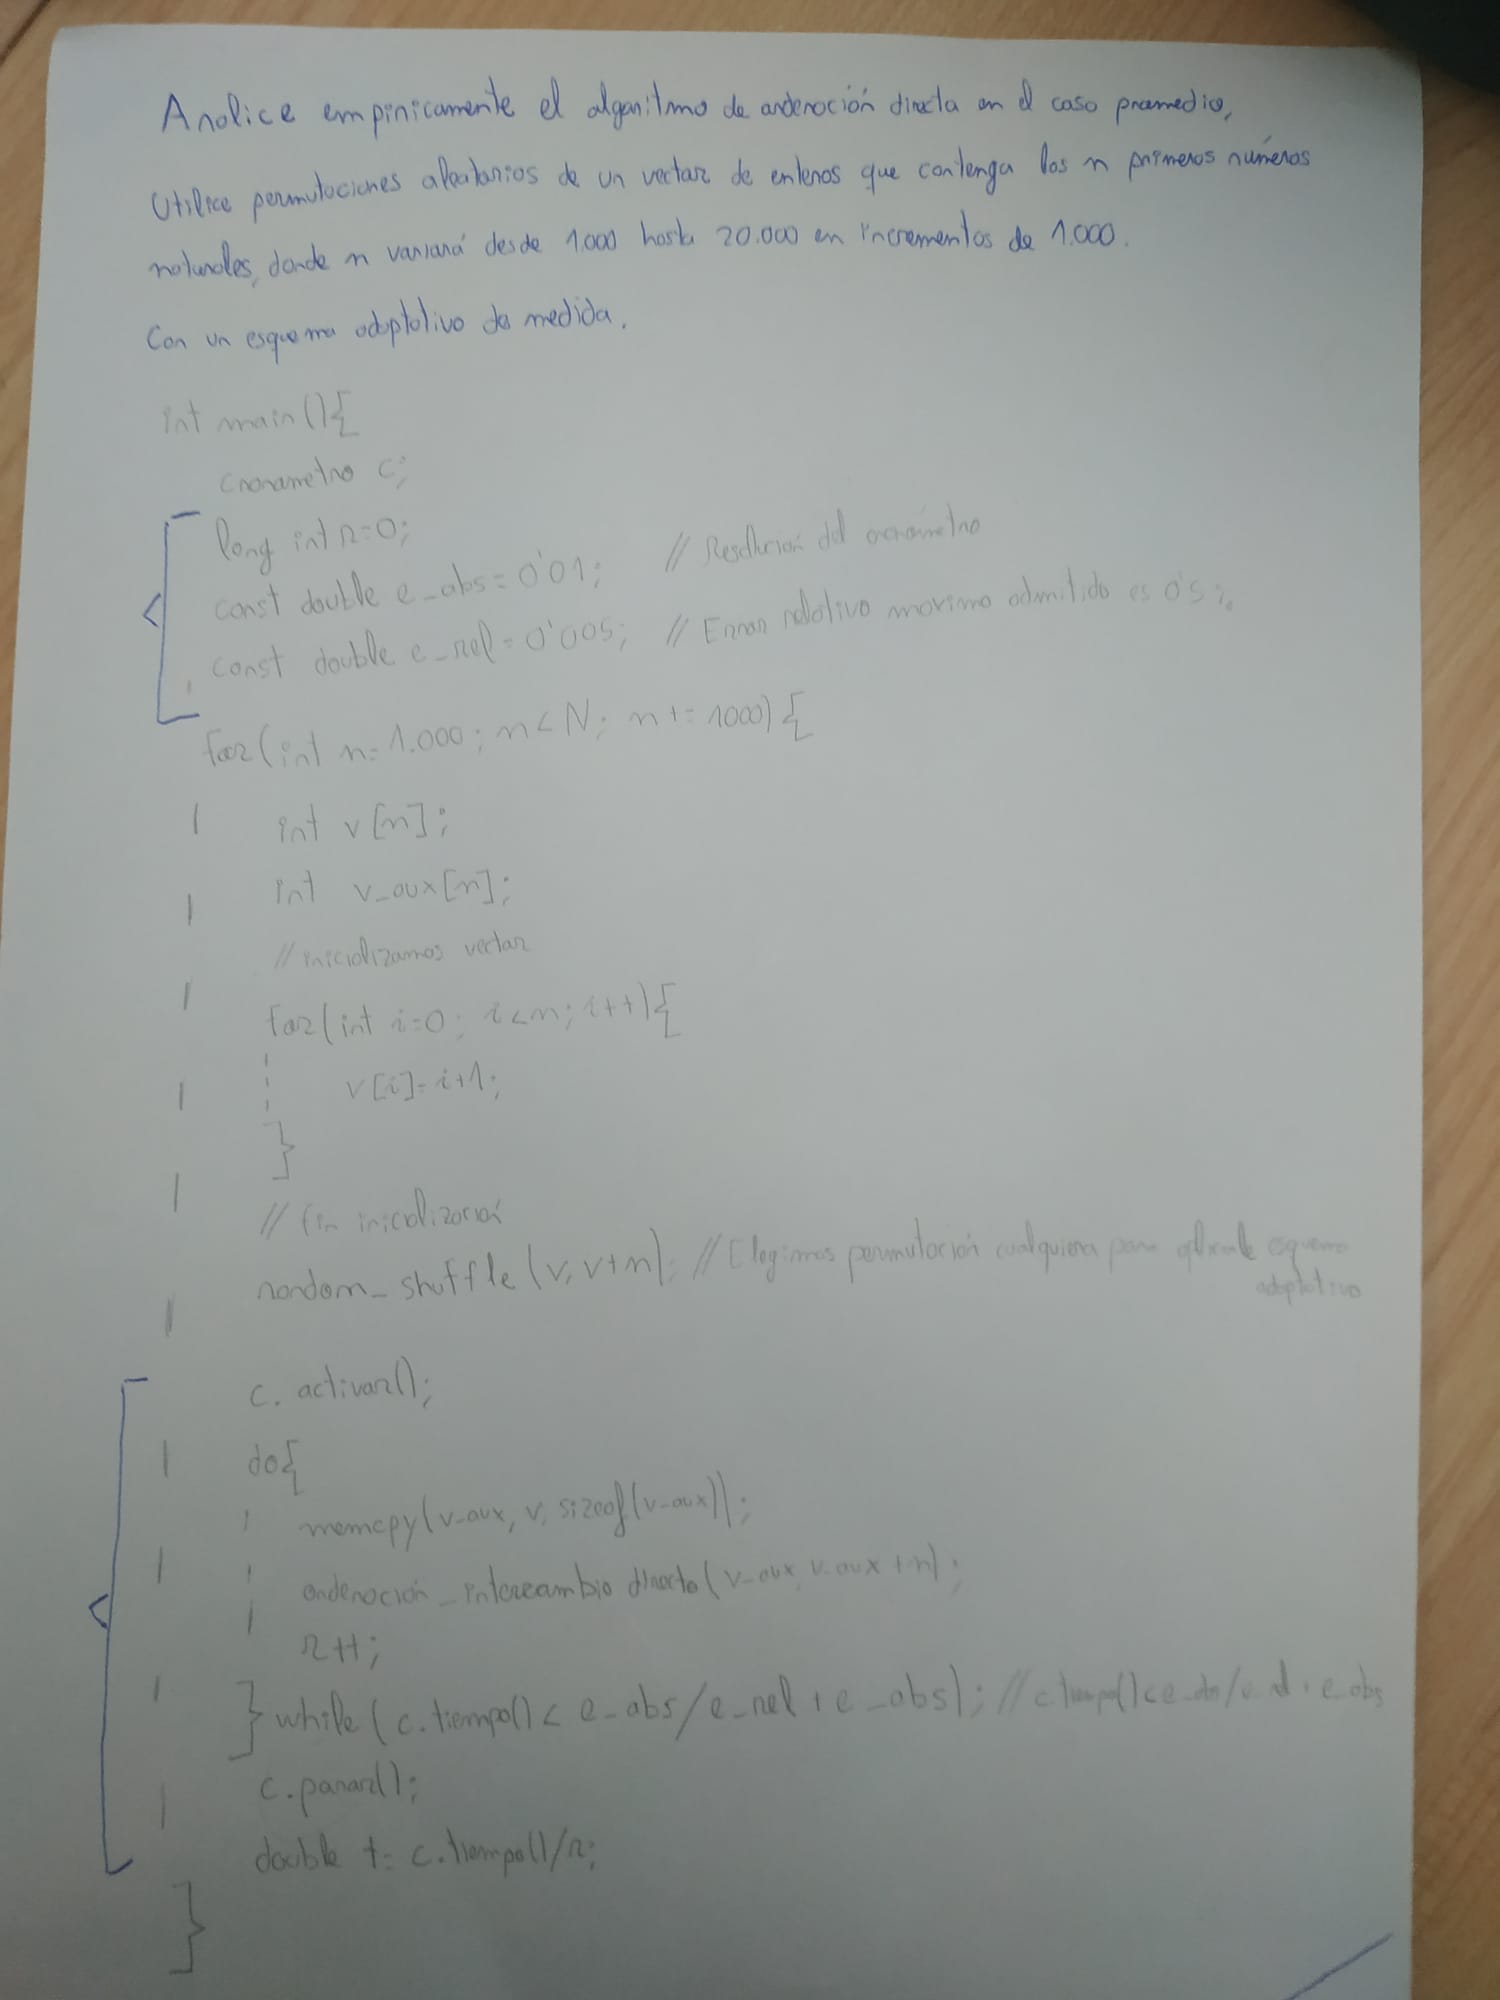 Analice empíricamente el algoritmo de ordenación directa en el caso promedio,
Utilice permutaciones aleatorias de un vector de enteros que contenga los n primeros números
naturales, donde n variará desde 1.000 hasta 20.000 en incrementos de 1.000.
Con un esquema adaptativo de medida.
int main(){
cronometro c;
long int r=0;
const double e_abs=0'01; // Resolución del cronómetro
const double e_rel=0'005; // Error relativo maximo admitido es 0'5%
for(int n=1.000; n<N; n+=1000){
int v[n];
int v_aux[n];
// inicializamos vector
for(int i=0; i<n; i++){
v[i]=i+1;
}
// fin inicialización
random_shuffle(v,v+n); // Elegimos permutación cualquiera para aplicarle esquema
adaptativo
c. activar();
do{
memcpy(v_aux, v, sizeof(v_aux));
ordenación_intercambio directo(v_aux, v_aux+n);
r++;
} while(c.tiempo()< e_abs/e_rel + e_abs); // c.tiempo()<e_abs/e_rel + e_abs
c.parar();
double t= c.tiempo()/r;
}